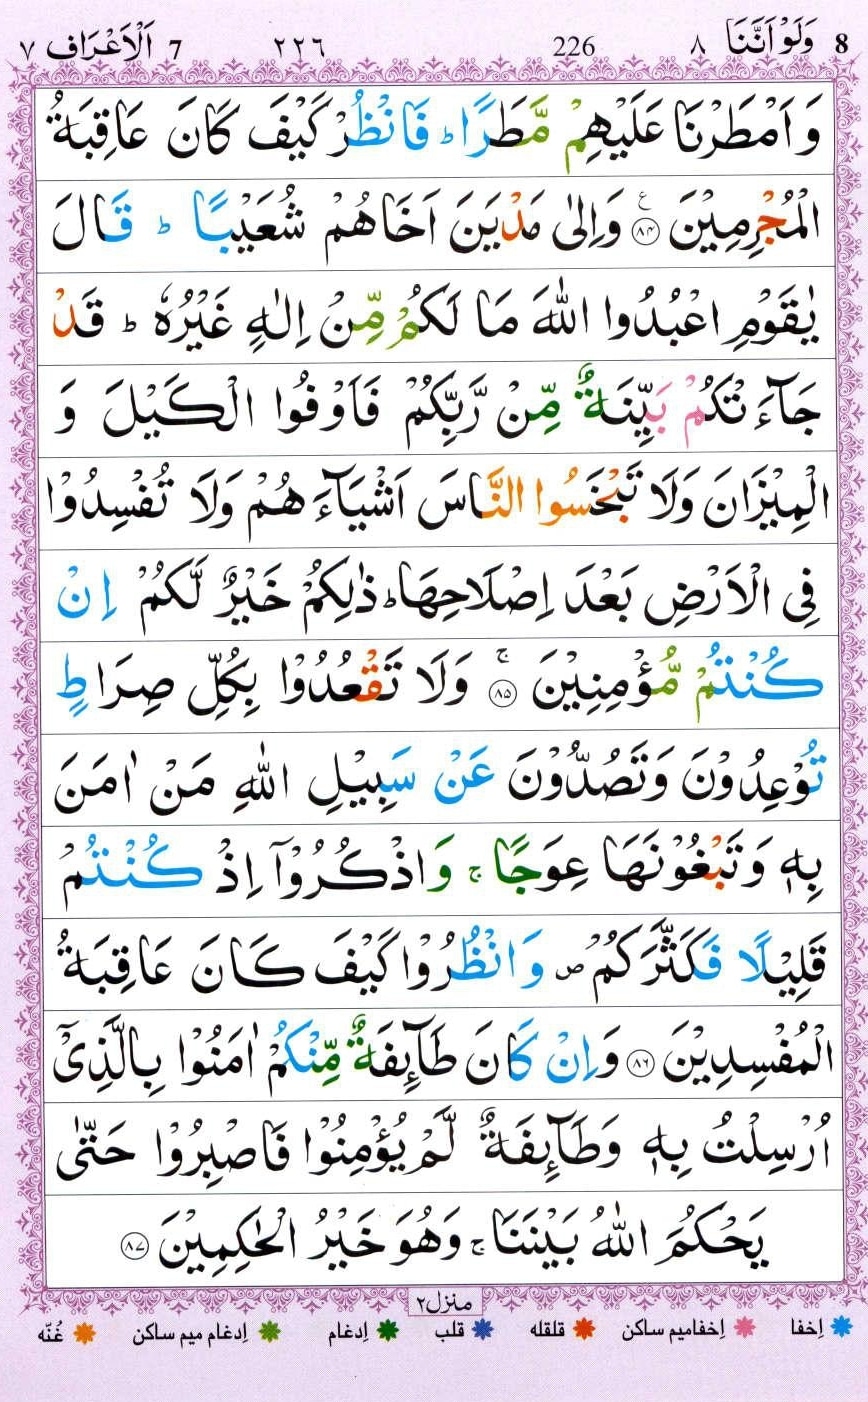 8 وَلَوْ اَنَّنَا ٨ 226 ٢٢٦ 7 اَلْاَعْرَاف ٧
وَ اَمْطَرْنَا عَلَيْهِمْ مَّطَرًا ؕ فَانْظُرْ كَيْفَ كَانَ عَاقِبَةُ
الْمُجْرِمِيْنَ ﴿۸۴﴾ ع وَاِلٰى مَدْيَنَ اَخَاهُمْ شُعَيْبًا ؕ قَالَ
يٰقَوْمِ اعْبُدُوا اللّٰهَ مَا لَكُمْ مِّنْ اِلٰهٍ غَيْرُهٗ ؕ قَدْ
جَآءَتْكُمْ بَيِّنَةٌ مِّنْ رَّبِّكُمْ فَاَوْفُوا الْكَيْلَ وَ
الْمِيْزَانَ وَلَا تَبْخَسُوا النَّاسَ اَشْيَآءَهُمْ وَلَا تُفْسِدُوْا
فِى الْاَرْضِ بَعْدَ اِصْلَاحِهَا ؕ ذٰلِكُمْ خَيْرٌ لَّكُمْ اِنْ
كُنْتُمْ مُّؤْمِنِيْنَ ﴿۸۵﴾ ۚ وَلَا تَقْعُدُوْا بِكُلِّ صِرَاطٍ
تُوْعِدُوْنَ وَتَصُدُّوْنَ عَنْ سَبِيْلِ اللّٰهِ مَنْ اٰمَنَ
بِهٖ وَتَبْغُوْنَهَا عِوَجًا ۚ وَاذْكُرُوْۤا اِذْ كُنْتُمْ
قَلِيْلًا فَكَثَّرَكُمْ ۪ وَانْظُرُوْا كَيْفَ كَانَ عَاقِبَةُ
الْمُفْسِدِيْنَ ﴿۸۶﴾ وَاِنْ كَانَ طَآئِفَةٌ مِّنْكُمْ اٰمَنُوْا بِالَّذِىْۤ
اُرْسِلْتُ بِهٖ وَطَآئِفَةٌ لَّمْ يُؤْمِنُوْا فَاصْبِرُوْا حَتّٰى
يَحْكُمَ اللّٰهُ بَيْنَنَا ۚ وَهُوَ خَيْرُ الْحٰكِمِيْنَ ﴿۸۷﴾
منزل ٢
اِخفا اِخفا میم ساکن قلقله قلب اِدغام اِدغام میم ساکن غُنّه